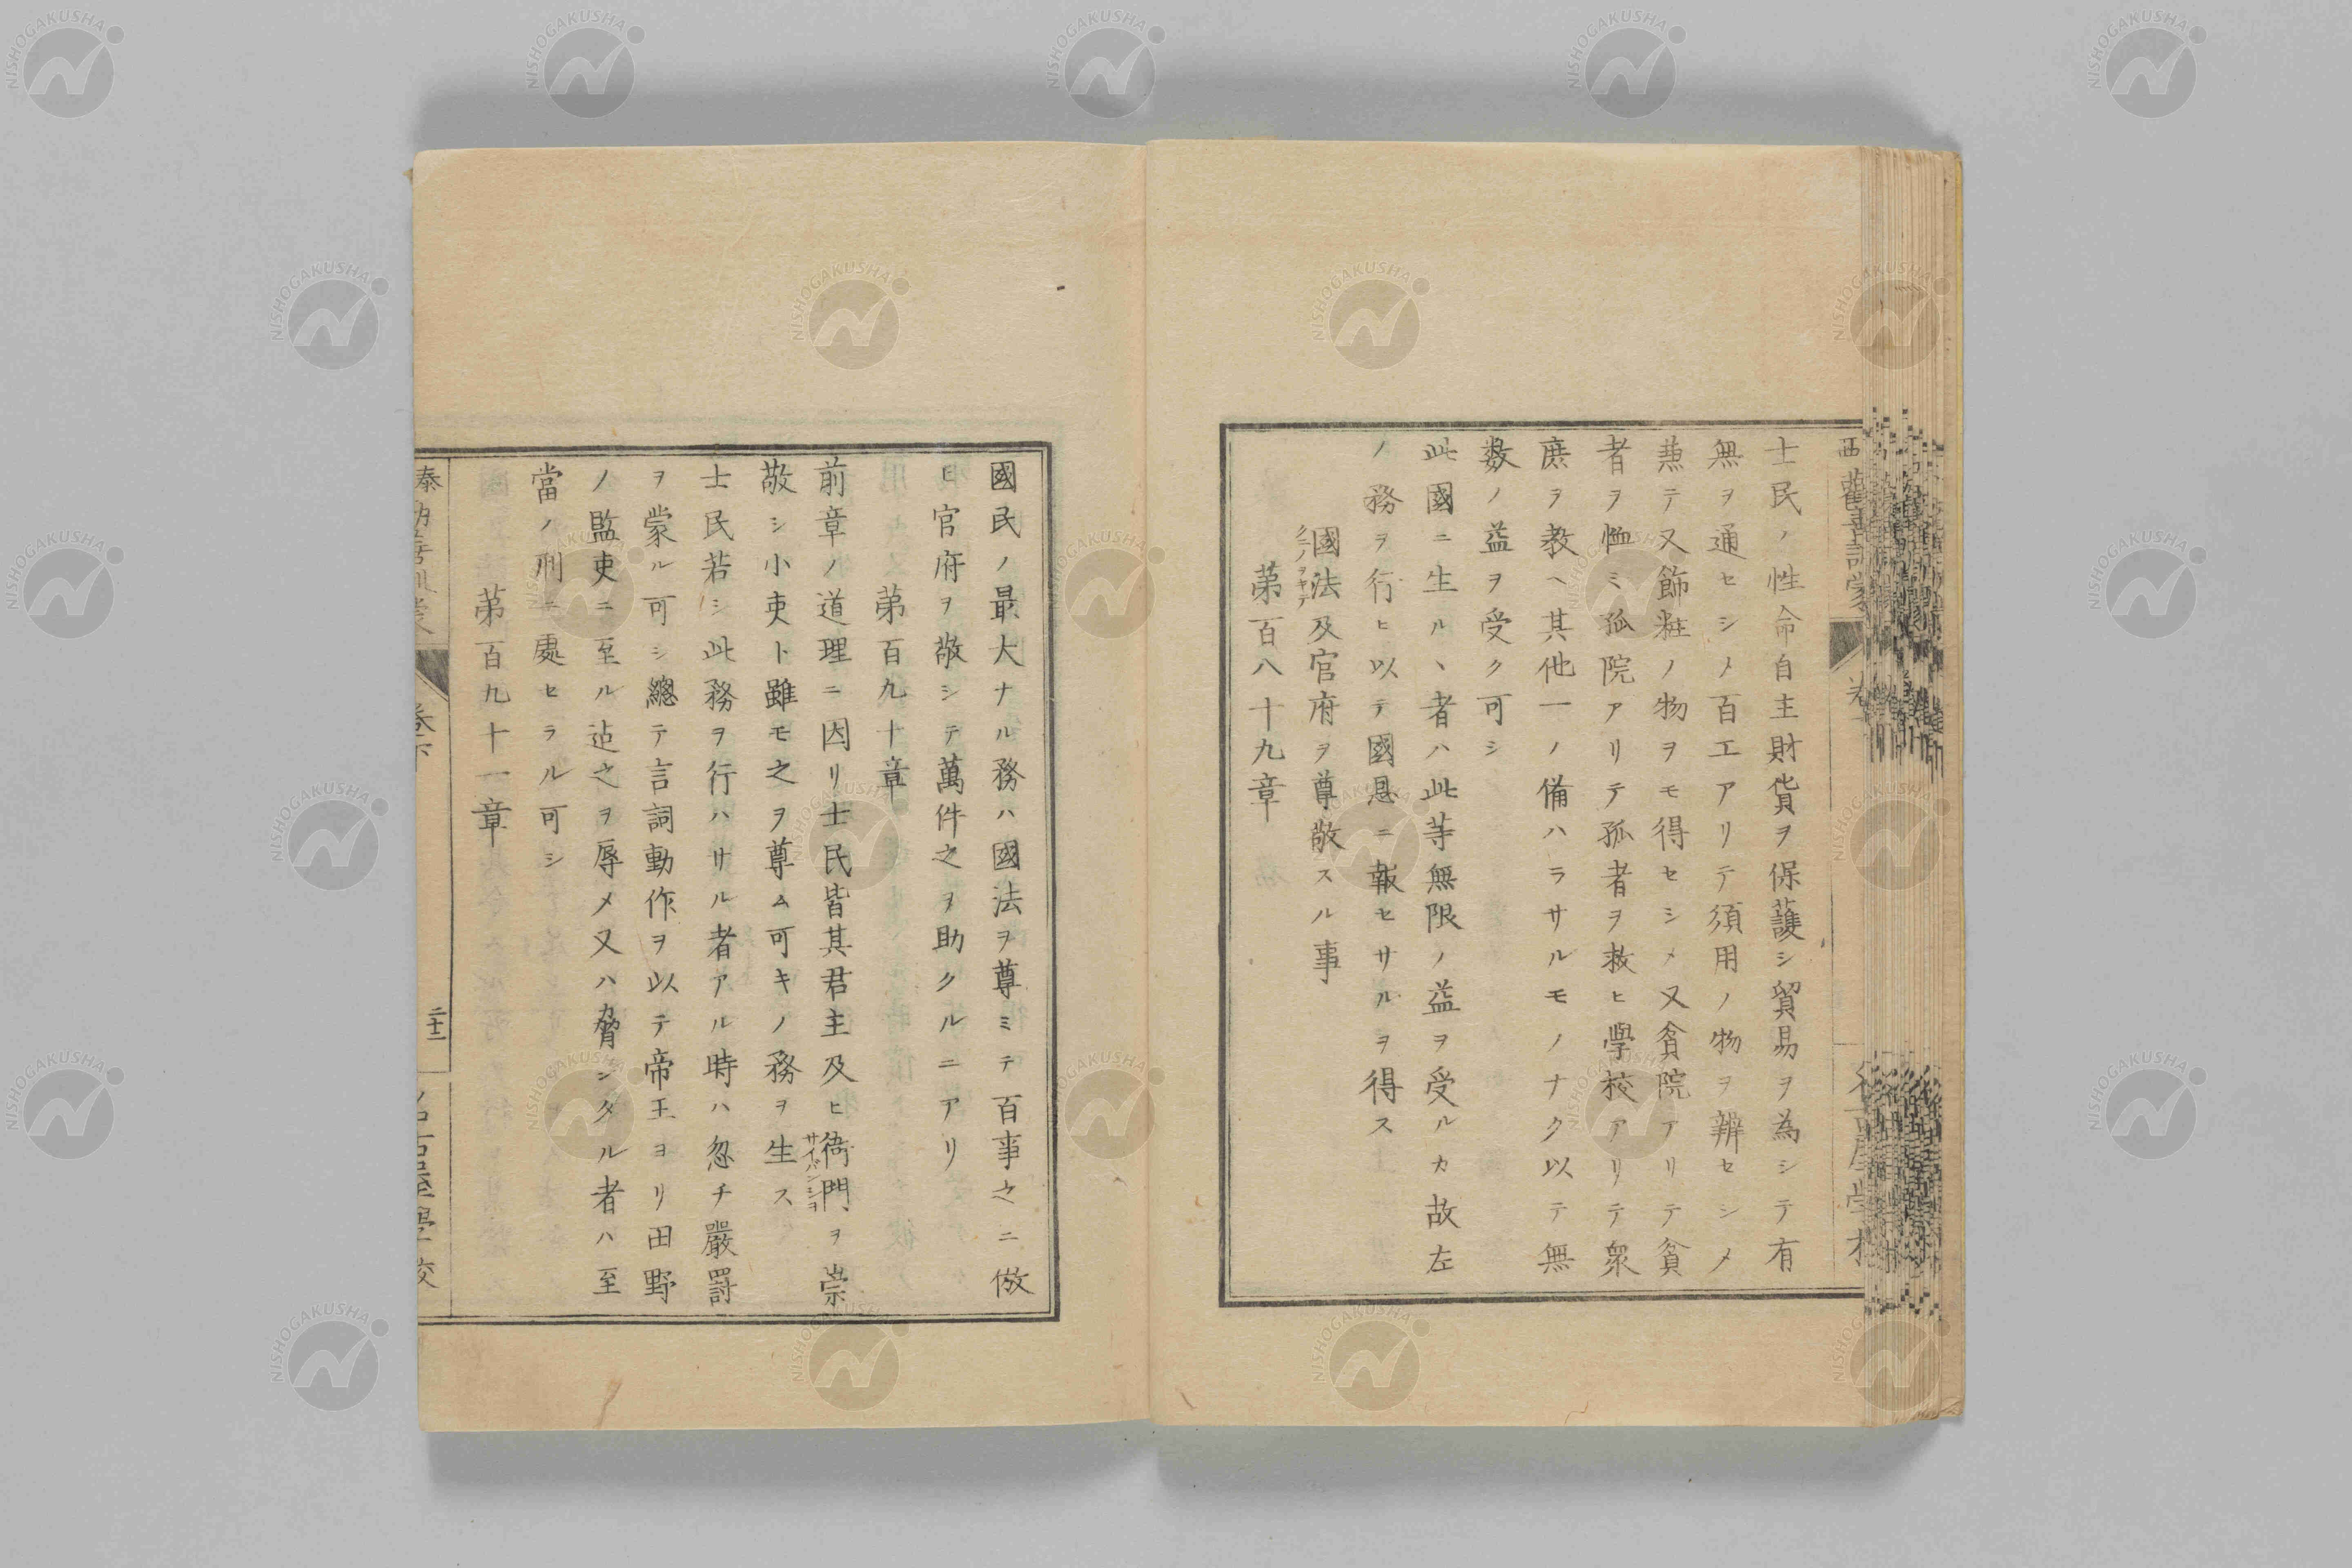 士民ノ性命自主財貨ヲ保護シ貿易ヲ為シテ有
無ヲ通セシメ百工アリテ須用ノ物ヲ辨セシメ
兼テ又飾粧ノ物ヲモ得セシメ又貧院アリテ貧
者ヲ恤ミ孤院アリテ孤者ヲ救ヒ學校アリテ衆
庶ヲ教ヘ其他一ノ備ハラサルモノナク以テ無
数ノ益ヲ受ク可シ
此國ニ生ルヽ者ハ此等無限ノ益ヲ受ルカ故左
ノ務ヲ行ヒ以テ國恩ニ報セサルヲ得ス
國法及官府ヲ尊敬スル事
クニノヲキテ
第百八十九章
國民ノ最大ナル務ハ國法ヲ尊ミテ百事之ニ倣
ヒ官府ヲ敬シテ萬件之ヲ助クルニアリ
第百九十章
前章ノ道理ニ因リ士民皆其君主及ヒ衙門ヲ崇
サイバンシヨ
敬シ小吏ト雖モ之ヲ尊ム可キノ務ヲ生ス
士民若シ此務ヲ行ハサル者アル時ハ忽チ嚴罰
ヲ蒙ル可シ總テ言詞動作ヲ以テ帝王ヨリ田野
ノ監吏ニ至ル迠之ヲ辱メ又ハ脅シタル者ハ至
當ノ刑ニ處セラル可シ
第百九十一章
卷下
二十二
名古屋學校
NISHOGAKUSHA